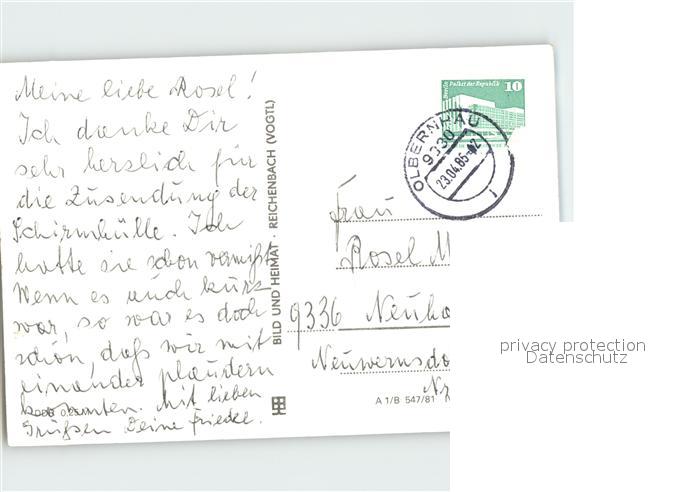 Meine liebe Rosel!
Ich danke Dir
sehr herzlich für
die Zusendung der
Schirmhülle. Ich
hatte sie schon vermißt.
Wenn es auch kurz
war, so war es doch
schön, daß wir mit
einander plaudern
konnten. Mit lieben
Grüßen Deine Friedel.
BILD UND HEIMAT · REICHENBACH (VOGTL)
Berlin Palast der Republik
10
OLBERNHAU
9330
23.04.85
1
Frau
Rosel M
9336 Neuha
Neuwernsdo
Nr
A 1/B 547/81
privacy protection
Datenschutz